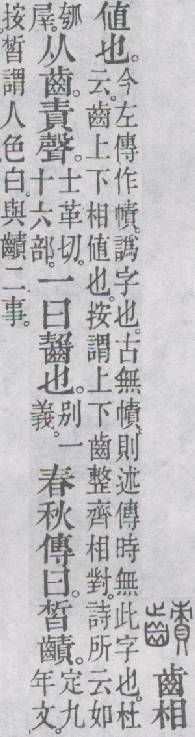 齒相
值也。今左傳作幘。譌字也。古無幘。則述傳時無此字也。杜云。齒上下相值也。按謂上下齒整齊相對。詩所云如
瓠犀。从齒責聲。士革切。十六部。一曰齧也。別一義。春秋傳曰。皙䶦。定九年文。
按皙謂人色白。與䶦二事。